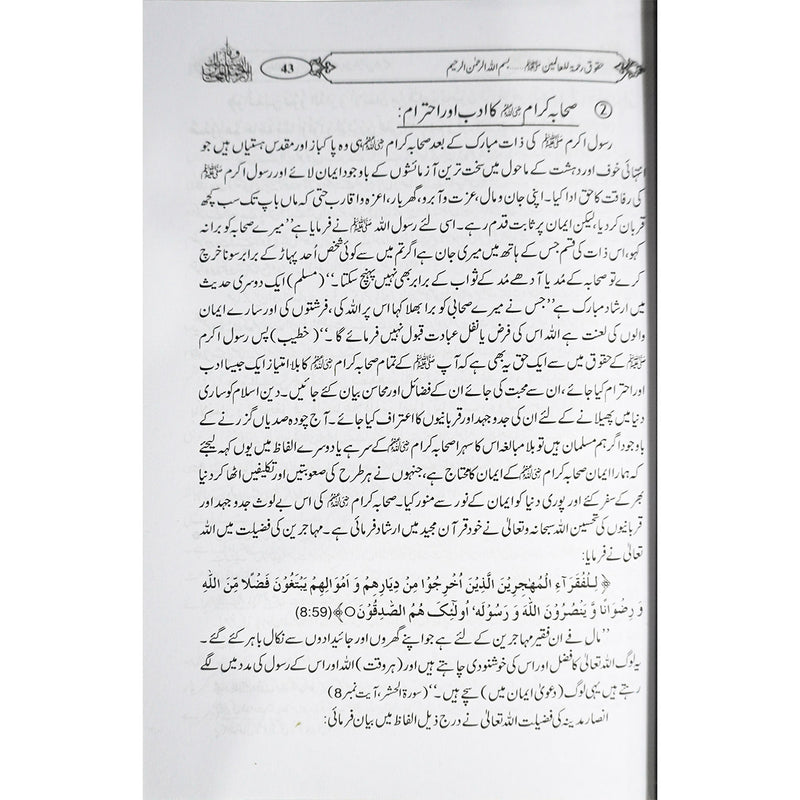 43
حقوق رحمۃ للعالمین ﷺ......بسم اللہ الرحمن الرحیم
② صحابہ کرام رضی اللہ عنہم کا ادب اور احترام:
رسول اکرم ﷺ کی ذات مبارک کے بعد صحابہ کرام رضی اللہ عنہم ہی وہ پاکباز اور مقدس ہستیاں ہیں جو
انتہائی خوف اور دہشت کے ماحول میں سخت ترین آزمائشوں کے باوجود ایمان لائے اور رسول اکرم ﷺ
کی رفاقت کا حق ادا کیا۔ اپنی جان و مال، عزت و آبرو، گھر بار، اعزہ و اقارب حتی کہ ماں باپ تک سب کچھ
قربان کر دیا، لیکن ایمان پر ثابت قدم رہے۔ اسی لئے رسول اللہ ﷺ نے فرمایا ہے ’’میرے صحابہ کو برا نہ
کہو، اس ذات کی قسم جس کے ہاتھ میں میری جان ہے اگر تم میں سے کوئی شخص اُحد پہاڑ کے برابر سونا خرچ
کرے تو صحابہ کے مُد یا آدھے مُد کے ثواب کے برابر بھی نہیں پہنچ سکتا۔‘‘ (مسلم) ایک دوسری حدیث
میں ارشاد مبارک ہے ’’جس نے میرے صحابی کو برا بھلا کہا اس پر اللہ کی، فرشتوں کی اور سارے ایمان
والوں کی لعنت ہے اللہ اس کی فرض یا نفل عبادت قبول نہیں فرمائے گا ۔‘‘ (خطیب) پس رسول اکرم
ﷺ کے حقوق میں سے ایک حق یہ بھی ہے کہ آپ ﷺ کے تمام صحابہ کرام رضی اللہ عنہم کا بلا امتیاز ایک جیسا ادب
اور احترام کیا جائے، ان سے محبت کی جائے ان کے فضائل اور محاسن بیان کئے جائیں۔ دین اسلام کو ساری
دنیا میں پھیلانے کے لئے ان کی جدوجہد اور قربانیوں کا اعتراف کیا جائے۔ آج چودہ صدیاں گزرنے کے
باوجود اگر ہم مسلمان ہیں تو بلا مبالغہ اس کا سہرا صحابہ کرام رضی اللہ عنہم کے سر ہے یا دوسرے الفاظ میں یوں کہہ لیجئے
کہ ہمارا ایمان صحابہ کرام رضی اللہ عنہم کے ایمان کا محتاج ہے، جنہوں نے ہر طرح کی صعوبتیں اور تکلیفیں اٹھا کر دنیا
بھر کے سفر کئے اور پوری دنیا کو ایمان کے نور سے منور کیا۔ صحابہ کرام رضی اللہ عنہم کی اس بے لوث جدوجہد اور
قربانیوں کی تحسین اللہ سبحانہ و تعالیٰ نے خود قرآن مجید میں ارشاد فرمائی ہے۔ مہاجرین کی فضیلت میں اللہ
تعالیٰ نے فرمایا:
﴿ لِلْفُقَرَآءِ الْمُهٰجِرِيْنَ الَّذِيْنَ اُخْرِجُوْا مِنْ دِيَارِهِمْ وَ اَمْوَالِهِمْ يَبْتَغُوْنَ فَضْلًا مِّنَ اللّٰهِ
وَ رِضْوَانًا وَّ يَنْصُرُوْنَ اللّٰهَ وَ رَسُوْلَهٗ اُولٰٓئِكَ هُمُ الصّٰدِقُوْنَ○﴾ (8:59)
’’مال فے ان فقیر مہاجرین کے لئے ہے جو اپنے گھروں اور جائیدادوں سے نکال باہر کئے گئے ۔
یہ لوگ اللہ تعالیٰ کا فضل اور اس کی خوشنودی چاہتے ہیں اور (ہر وقت) اللہ اور اس کے رسول کی مدد میں لگے
رہتے ہیں یہی لوگ (دعویٰ ایمان میں) سچے ہیں ۔‘‘ (سورۃ الحشر، آیت نمبر 8)
انصار مدینہ کی فضیلت اللہ تعالیٰ نے درج ذیل الفاظ میں بیان فرمائی: